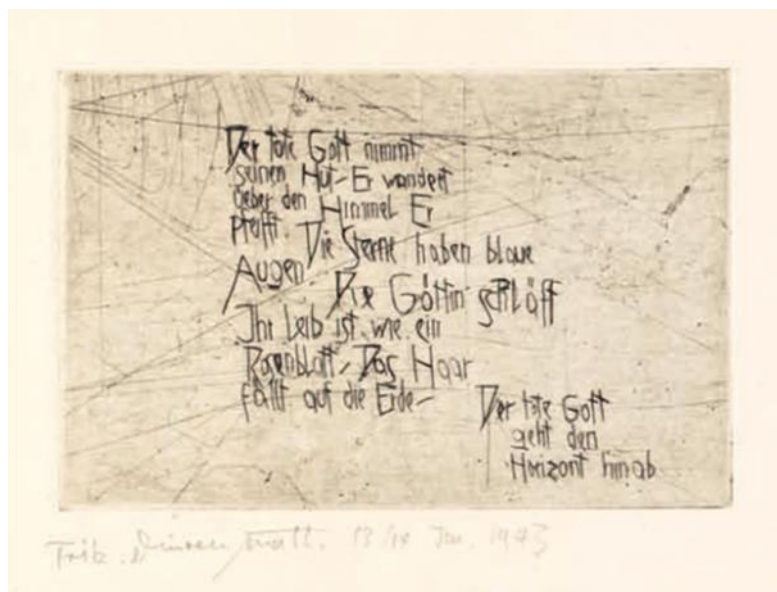 Der tote Gott nimmt
seinen Hut – Er wandert
ueber den Himmel Er
pfeifft. Die Sterne haben blaue
Augen Die Göttin schläff
Ihr Leib ist wie ein
Rosenblatt – Das Haar
fällt auf die Erde –
Der tote Gott
geht den
Horizont hinab
Fritz. Dürrenmatt. 13/14 Jan. 1943